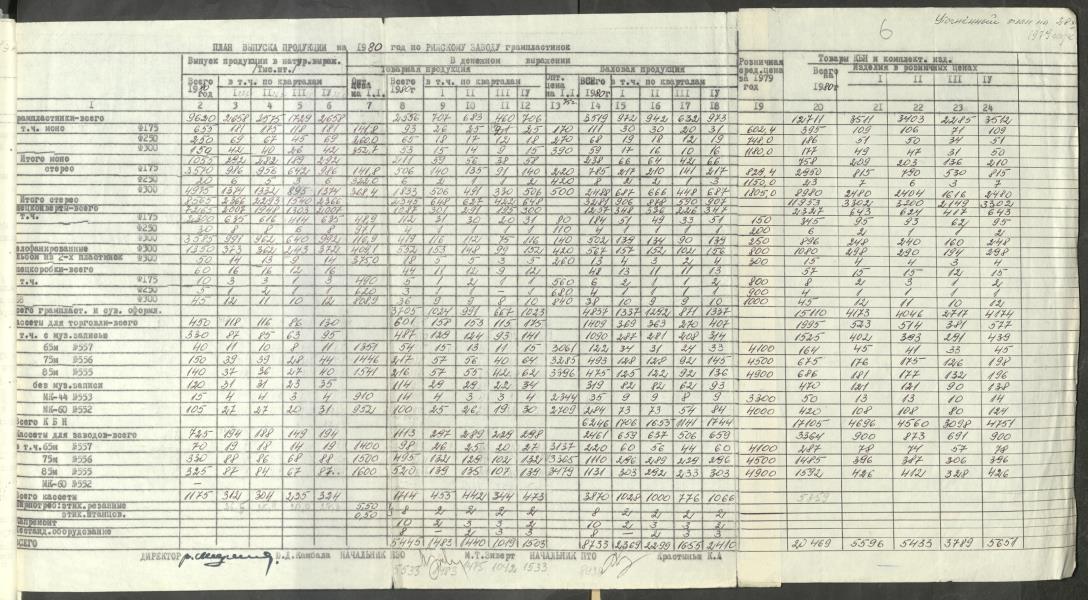 6
Уточнённый план на
1979 года
ПЛАН ВЫПУСКА ПРОДУКЦИИ на 1980 год по РИЖСКОМУ ЗАВОДУ грампластинок
Выпуск продукции в натур.выраж. /Тыс.шт./ В денежном выражении Розничная сред.цена за 1979 год Товары КБН и комплект. изд.
Товарная продукция Валовая продукция
Всего 1980 год в т.ч. по кварталам Опт. цена на 1.I. Всего 1980г в т.ч. по кварталам Опт. цена на 1.I. ВСЕГО 1980г в т.ч. по кварталам Всего на 1980г изделия в розничных ценах
I II III IV I II III IV I II III IV I II III IV
I 2 3 4 5 6 7 8 9 10 11 12 13 14 15 16 17 18 19 20 21 22 23 24
рампластинки-всего 9620 2658 2575 1729 2658 2556 707 683 460 706 3519 972 942 632 973 12711 3511 3403 2285 3512
т.ч. моно Ф175 655 181 175 118 181 141,8 93 26 25 21 170 111 30 30 20 31 602,4 395 109 106 71 109
Ф250 250 69 67 45 69 260,0 65 18 17 12 16 270 68 19 18 12 19 748,0 186 51 50 34 51
Ф300 150 42 40 26 42 352,7 53 15 14 9 15 390 59 17 16 10 16 1180,0 177 49 47 31 50
Итого моно 1055 292 282 189 292 211 59 56 38 58 238 66 64 42 66 758 209 203 136 210
стерео Ф175 3570 986 956 642 986 141,8 506 140 135 91 140 220 785 217 210 141 217 829,4 2950 815 790 530 815
Ф250 20 6 5 3 6 2 1 1 420 8 2 2 1 3 1150,0 23 7 6 3 7
Ф300 4975 1374 1332 895 1374 368,4 1833 506 491 330 506 500 2488 687 666 448 687 1805,0 8980 2480 2404 1616 2480
Итого стерео 8565 2366 2293 1540 2366 2345 648 627 422 648 3281 906 878 590 907 11953 3302 3200 2149 3302
2007 2007 1087 301 291 195 300 1257 348 336 226 347 2327 643 624 417 643
т.ч. Ф175 635 616 414 635 48,9 112 31 30 20 31 80 184 51 49 33 51 150 345 95 93 62 95
Ф250 30 8 8 6 8 97,1 4 1 1 1 1 110 4 1 1 1 1 200 6 2 1 1 2
Ф300 3585 991 962 640 992 116,9 419 116 112 75 116 140 502 139 134 90 139 250 896 248 240 160 248
елофанированные 1350 373 243 372 148 99 152 420 567 157 152 102 156 800 1080 298 290 194 298
льбом из 2-х пластинок 50 14 13 9 14 375,0 18 5 5 3 5 260 13 4 3 2 4 300 15 4 4 3 4
пецкоробки-всего 60 16 16 12 16 44 11 12 9 12 48 13 11 11 13 57 15 15 12 15
т.ч. Ф175 10 3 3 1 3 490 5 1 2 1 1 560 6 2 1 1 2 800 8 2 3 1 2
Ф250 5 1 2 1 1 620 3 1 1 1 680 4 1 1 1 1 900 4 1 1 1 1
Ф300 45 12 11 10 12 808,9 36 9 9 8 10 840 38 10 9 9 10 1000 45 12 11 10 12
сего грампласт. и сув. оформл. 3705 1024 991 667 1023 4837 1337 1292 871 1337 15110 4173 4046 2717 4174
ассеты для торговли-всего 450 118 116 86 130 601 158 153 115 175 1409 369 363 270 407 1995 523 514 381 577
т.ч. с муз.записью 330 87 85 63 95 487 129 124 93 141 1090 287 281 208 314 1525 402 393 291 439
65м №557 40 11 10 8 11 1351 54 15 13 11 15 3061 122 34 31 24 33 4100 164 45 41 33 45
75м №556 150 39 39 28 44 1446 217 57 56 40 64 3285 493 128 128 92 145 4500 675 176 175 126 198
85м №555 140 37 36 27 40 1541 216 57 55 42 62 3396 475 125 122 92 136 4900 686 181 177 132 196
без муз.записи 120 31 31 23 35 114 29 29 22 34 319 82 82 62 93 470 121 121 90 138
МК-44 №553 15 4 4 3 4 910 14 4 3 3 4 2344 35 9 9 8 9 3300 50 13 13 10 14
МК-60 №552 105 27 27 20 31 952 100 25 26 19 30 2709 284 73 73 54 84 4000 420 108 108 80 124
Всего КБН 6246 1706 1655 1141 1744 17105 4696 4560 3098 4751
ассеты для заводов-всего 725 194 188 149 194 1113 297 289 229 298 2461 659 637 506 659 3364 900 873 691 900
в т.ч.65м №557 70 19 18 14 19 1400 98 26 25 20 27 3137 220 60 56 44 60 4100 287 78 74 57 78
75м №556 330 88 86 68 88 1500 495 132 129 102 132 3365 1110 296 289 229 296 4500 1485 396 387 306 396
85м №555 325 87 84 67 87 1600 520 139 135 107 139 3479 1131 303 292 233 303 4900 1592 426 412 328 426
МК-60 №552 —
Всего кассеты 1175 312 304 235 324 1714 455 442 344 473 3870 1028 1000 776 1066 5359
этик.резанные 5,50 8 2 2 2 2 8 2 2 2 2
этик.штанцов. 0,50
апремонт 10 2 3 3 2 10 2 3 3 2
естанд.оборудование 8 — 2 3 3 8 — 2 3 3
ВСЕГО 5445 1483 1440 1019 1503 8733 2369 2299 1655 2410 20469 5596 5433 3789 5651
ДИРЕКТОР Ю.Д.Камбала НАЧАЛЬНИК ПЭО М.Т.Зиверт НАЧАЛЬНИК ПТО Крастыньш К.А
5533 1483 1475 1042 1533